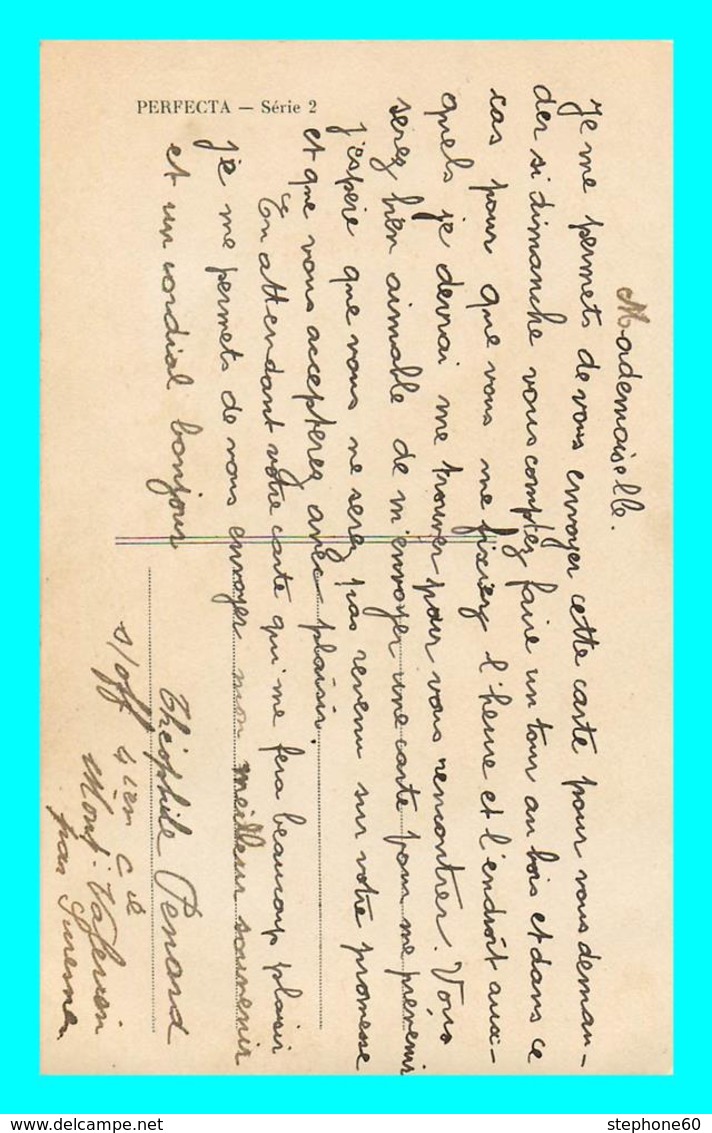 PERFECTA — Série 2
Mademoiselle.
Je me permets de vous envoyer cette carte pour vous deman-
der si dimanche vous comptez faire un tour au bois et dans ce
cas pour que vous me fixiez l'heure et l'endroit aux-
quels je devrai me trouver pour vous rencontrer. Vous
serez bien aimable de m'envoyer une carte pour me prévenir
j'espère que vous ne serez pas revenu sur votre promesse
et que vous accepterez avec plaisir.
En attendant votre carte qui me fera beaucoup plaisir
je me permets de vous envoyer mon meilleur souvenir
et un cordial bonjour
Théophile Penard
s/off 4 iem Cie
Mont-Valerien
par Suresnes
stephone60